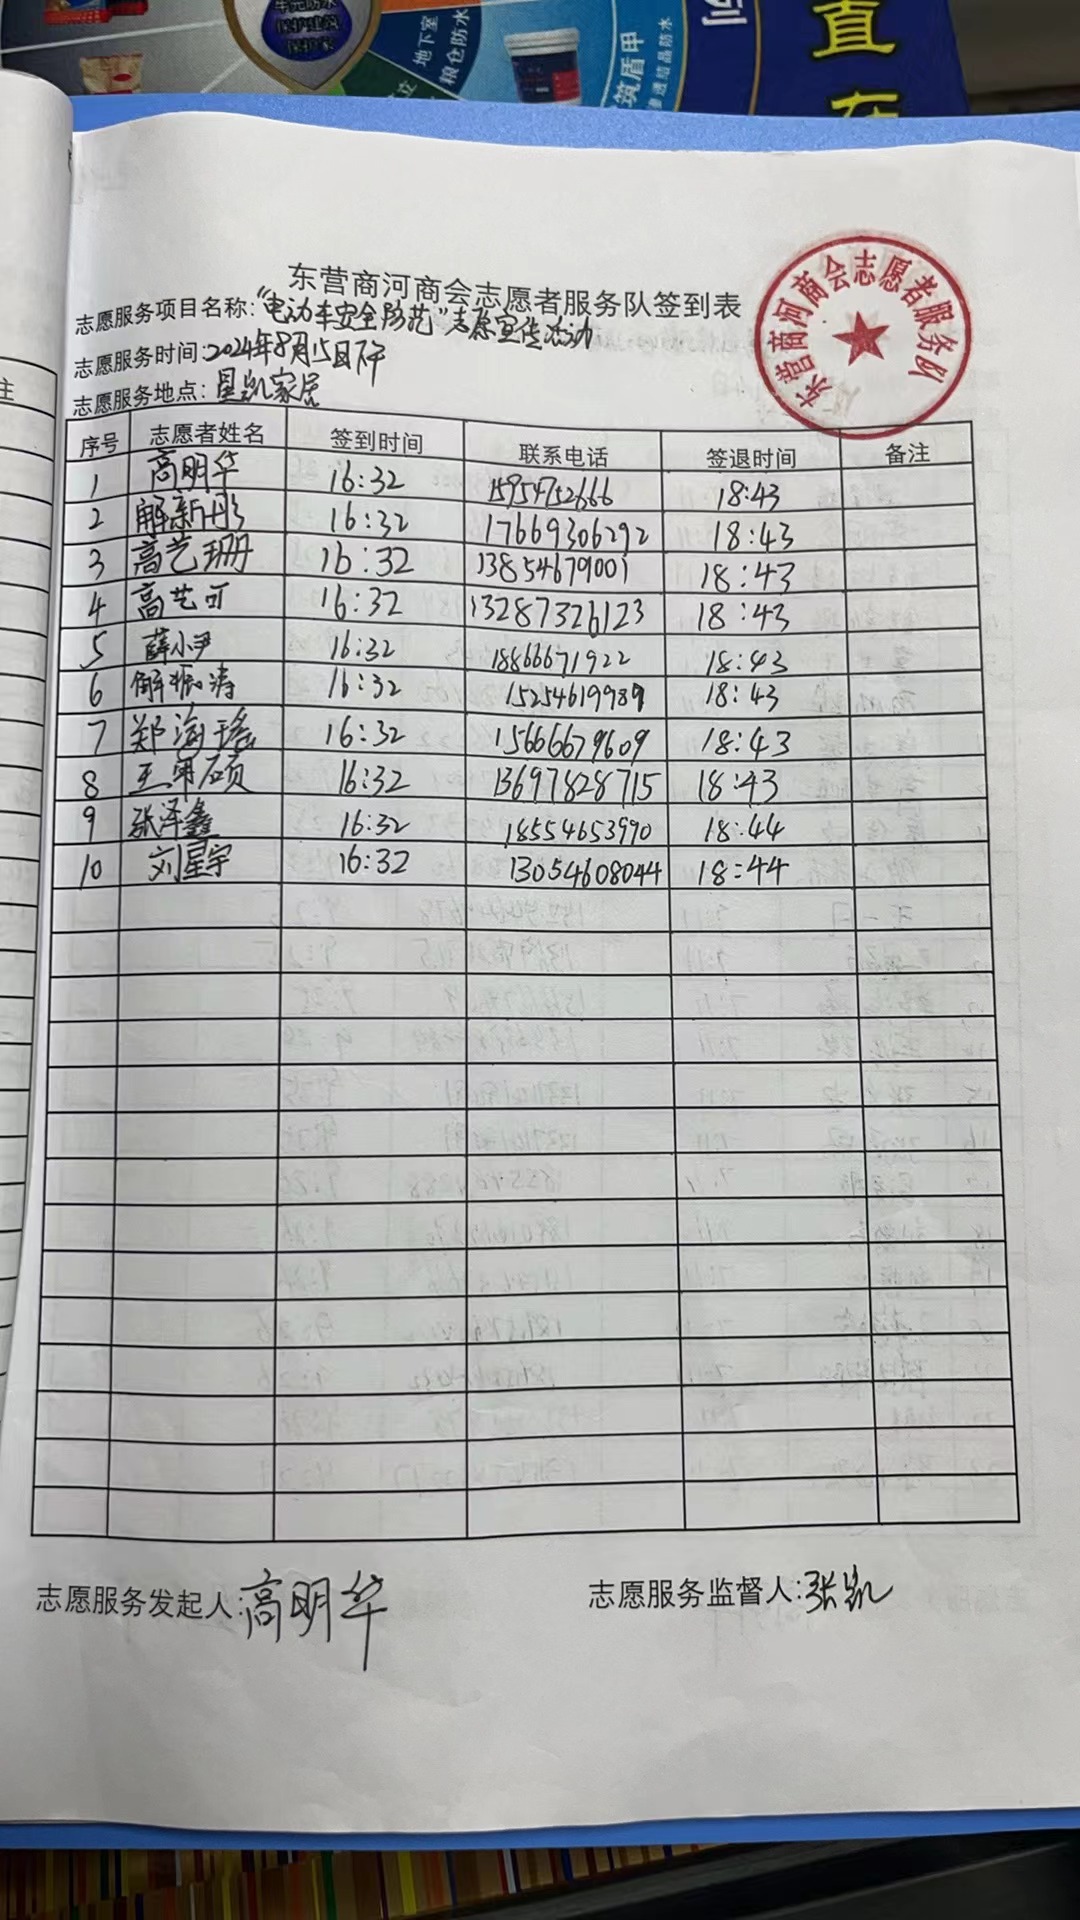 地下室
粮仓防水
筑盾甲
渗透结晶防水
列
直
在
注
东营商河商会志愿者服务队签到表
东营商河商会志愿者服务队
志愿服务项目名称:"电动车安全防范"志愿宣传活动
志愿服务时间:2024年8月15日下午
志愿服务地点:星凯家居
序号 志愿者姓名 签到时间 联系电话 签退时间 备注
1 高明华 16:32 15954752666 18:43
2 解新彤 16:32 17669306292 18:43
3 高艺珊 16:32 13854679001 18:43
4 高艺可 16:32 13287326123 18:43
5 薛小尹 16:32 18866671922 18:43
6 解振涛 16:32 15254619989 18:43
7 郑海瑶 16:32 15666679609 18:43
8 王军硕 16:32 13697828715 18:43
9 张泽鑫 16:32 18554653990 18:44
10 刘星宇 16:32 13054608044 18:44
志愿服务发起人:高明华 志愿服务监督人:张凯